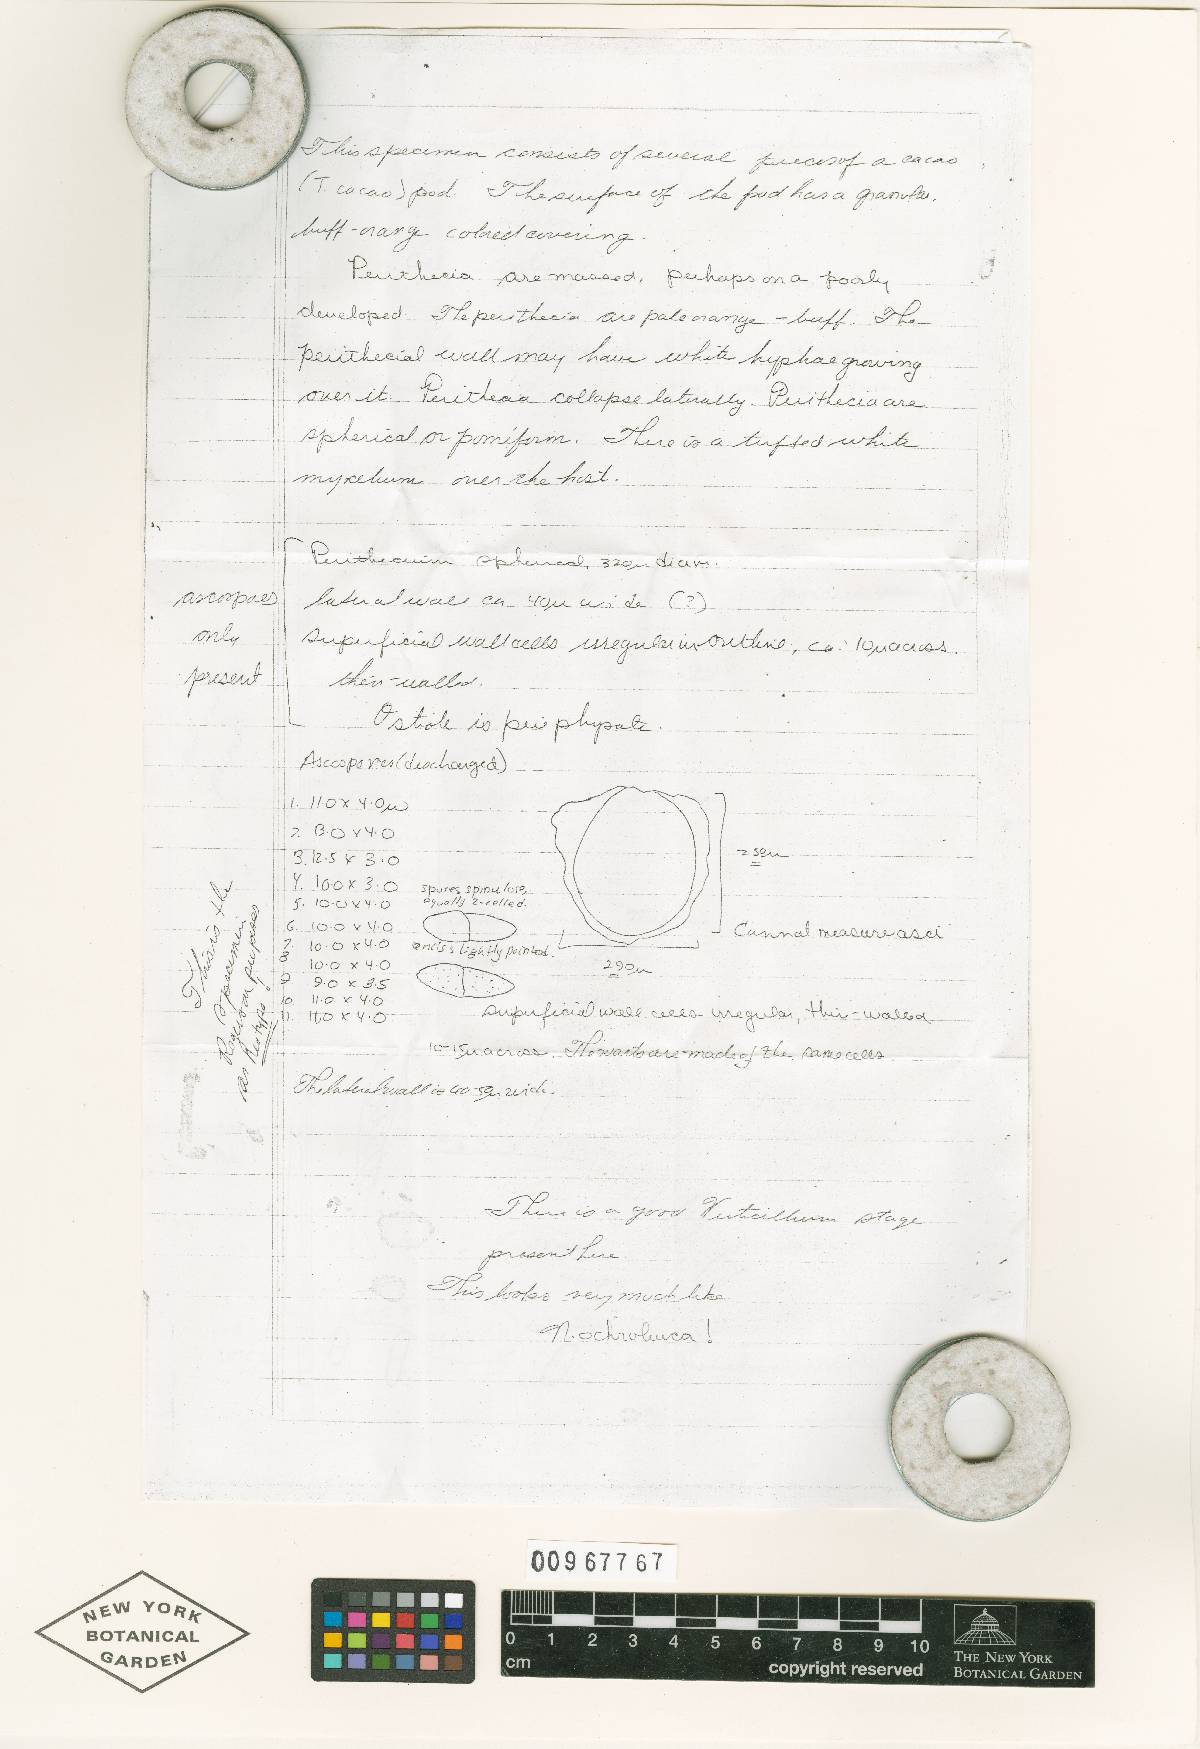 This specimen consists of several pieces of a cacao
(T. cacao) pod. The surface of the pod has a granular,
buff-orange colored covering.
Perithecia are massed, perhaps on a poorly
developed. The perithecia are pale orange-buff. The
perithecial wall may have white hyphae growing
over it. Perithecia collapse laterally. Perithecia are
spherical or pomiform. There is a tufted white
mycelium over the host.
ascospores
only
present
Perithecium spherical, 320µ diam.
lateral wall ca. 40µ wide (?)
Superficial wall cells irregular in outline, ca. 10µ across.
thin-walled.
Ostiole is periphysate.
Ascospores (discharged)
1. 11.0 x 4.0µ
2. 13.0 x 4.0
3. 12.5 x 3.0
4. 10.0 x 3.0
5. 10.0 x 4.0
6. 10.0 x 4.0
7. 10.0 x 4.0
8 10.0 x 4.0
9 9.0 x 3.5
10. 11.0 x 4.0
11. 11.0 x 4.0
spores spinulose,
equally 2-celled.
ends slightly pointed.
250µ
290µ
Cannot measure asci
This is the
specimen
Rogerson proposes
as neotype!
Superficial wall cells irregular, thin-walled
10-15µ across. The warts are made of the same cells.
The lateral wall is 40-50µ wide.
There is a good Verticillium stage
present here
This looks very much like
N. ochroleuca!
00967767
NEW YORK
BOTANICAL
GARDEN
0 1 2 3 4 5 6 7 8 9 10
cm
copyright reserved
THE NEW YORK
BOTANICAL GARDEN